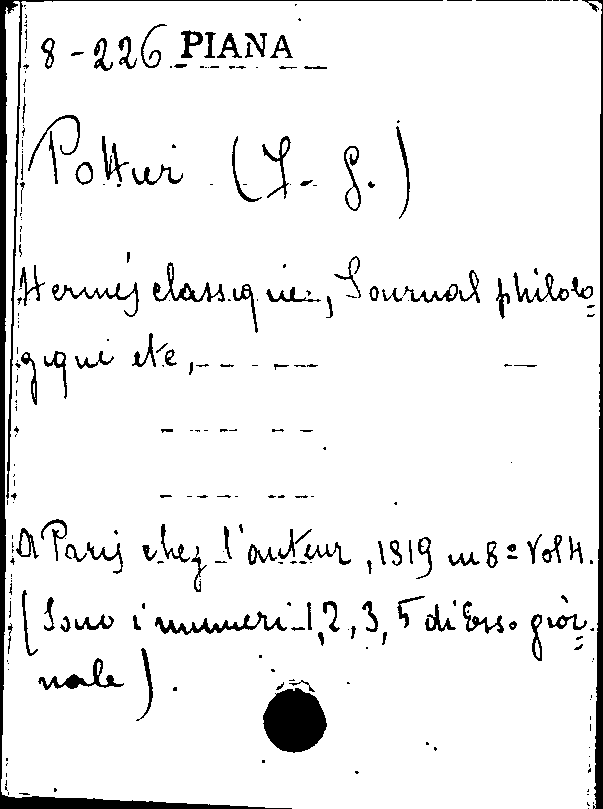 8-226 PIANA
Pottier (J-G.)
Hermés classique, Journal philolo=
gique etc,
A Paris chez l'auteur, 1819 in 8º Vol 4.
(Sono i numeri 1, 2, 3, 5 di Esso gior=
nale).